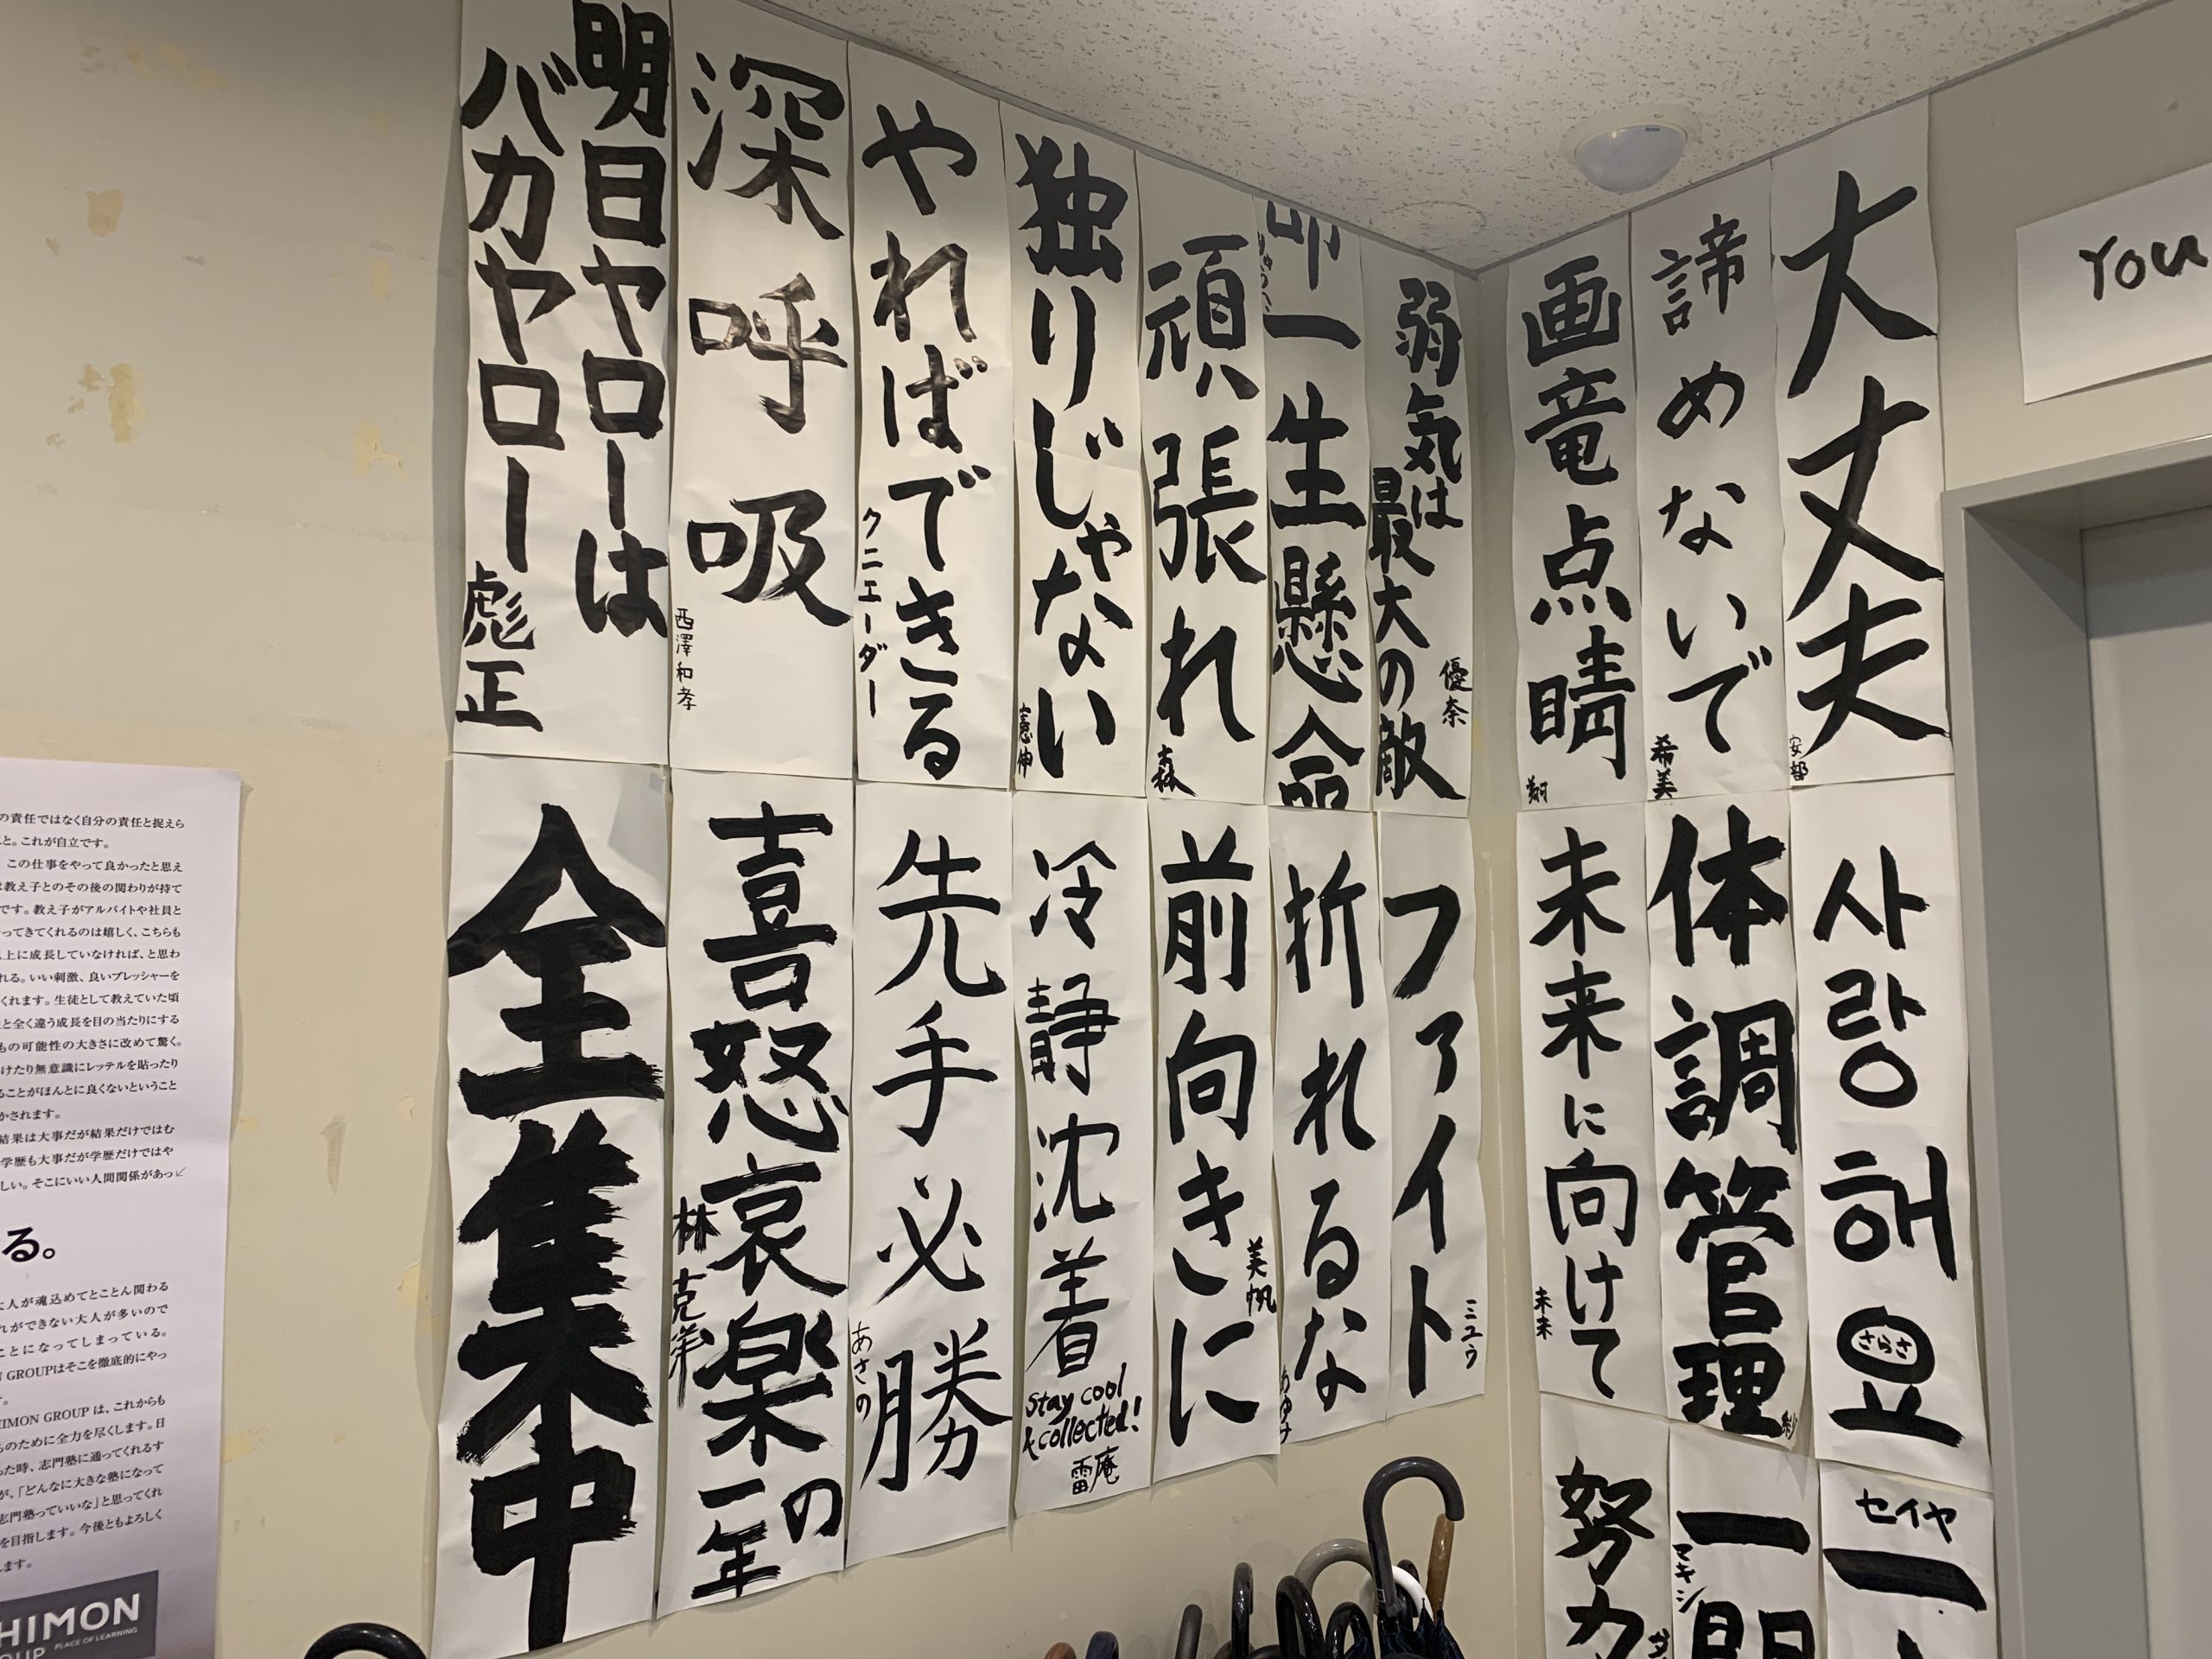 明日ヤローは
バカヤロー
彪正
深呼吸
西澤和孝
やればできる
クニエーダー
独りじゃない
憲伸
頑張れ
森
一生懸命
弱気は
最大の敵
優奈
画竜点睛
翔
諦めないで
希美
大丈夫
安部
You
全集中
喜怒哀楽の
一年
林克洋
先手必勝
あさの
冷静沈着
stay cool
& collected!
雷庵
前向きに
美帆
折れるな
ファイト
ミユウ
未来に向けて
未来
体調管理
紗
사랑해요
さらさ
努力
一
マキシ
セイヤ
一
の責任ではなく自分の責任と捉えら
と。これが自立です。
この仕事をやって良かったと思え
は教え子とのその後の関わりが持て
です。教え子がアルバイトや社員と
ってきてくれるのは嬉しく、こちらも
上に成長していなければ、と思わ
れる。いい刺激、良いプレッシャーを
くれます。生徒として教えていた頃
と全く違う成長を目の当たりにする
もの可能性の大きさに改めて驚く。
けたり無意識にレッテルを貼ったり
ることがほんとに良くないということ
かされます。
結果は大事だが結果だけではむ
学歴も大事だが学歴だけではや
しい。そこにいい人間関係があっ
る。
大人が魂込めてとことん関わる
れができない大人が多いので
ことになってしまっている。
GROUPはそこを徹底的にやっ
す。
HIMON GROUP は、これからも
ちのために全力を尽くします。日
った時、志門塾に通ってくれるす
が、「どんなに大きな塾になって
志門塾っていいな」と思ってくれ
を目指します。今後ともよろしく
します。
HIMON
OUP PLACE OF LEARNING